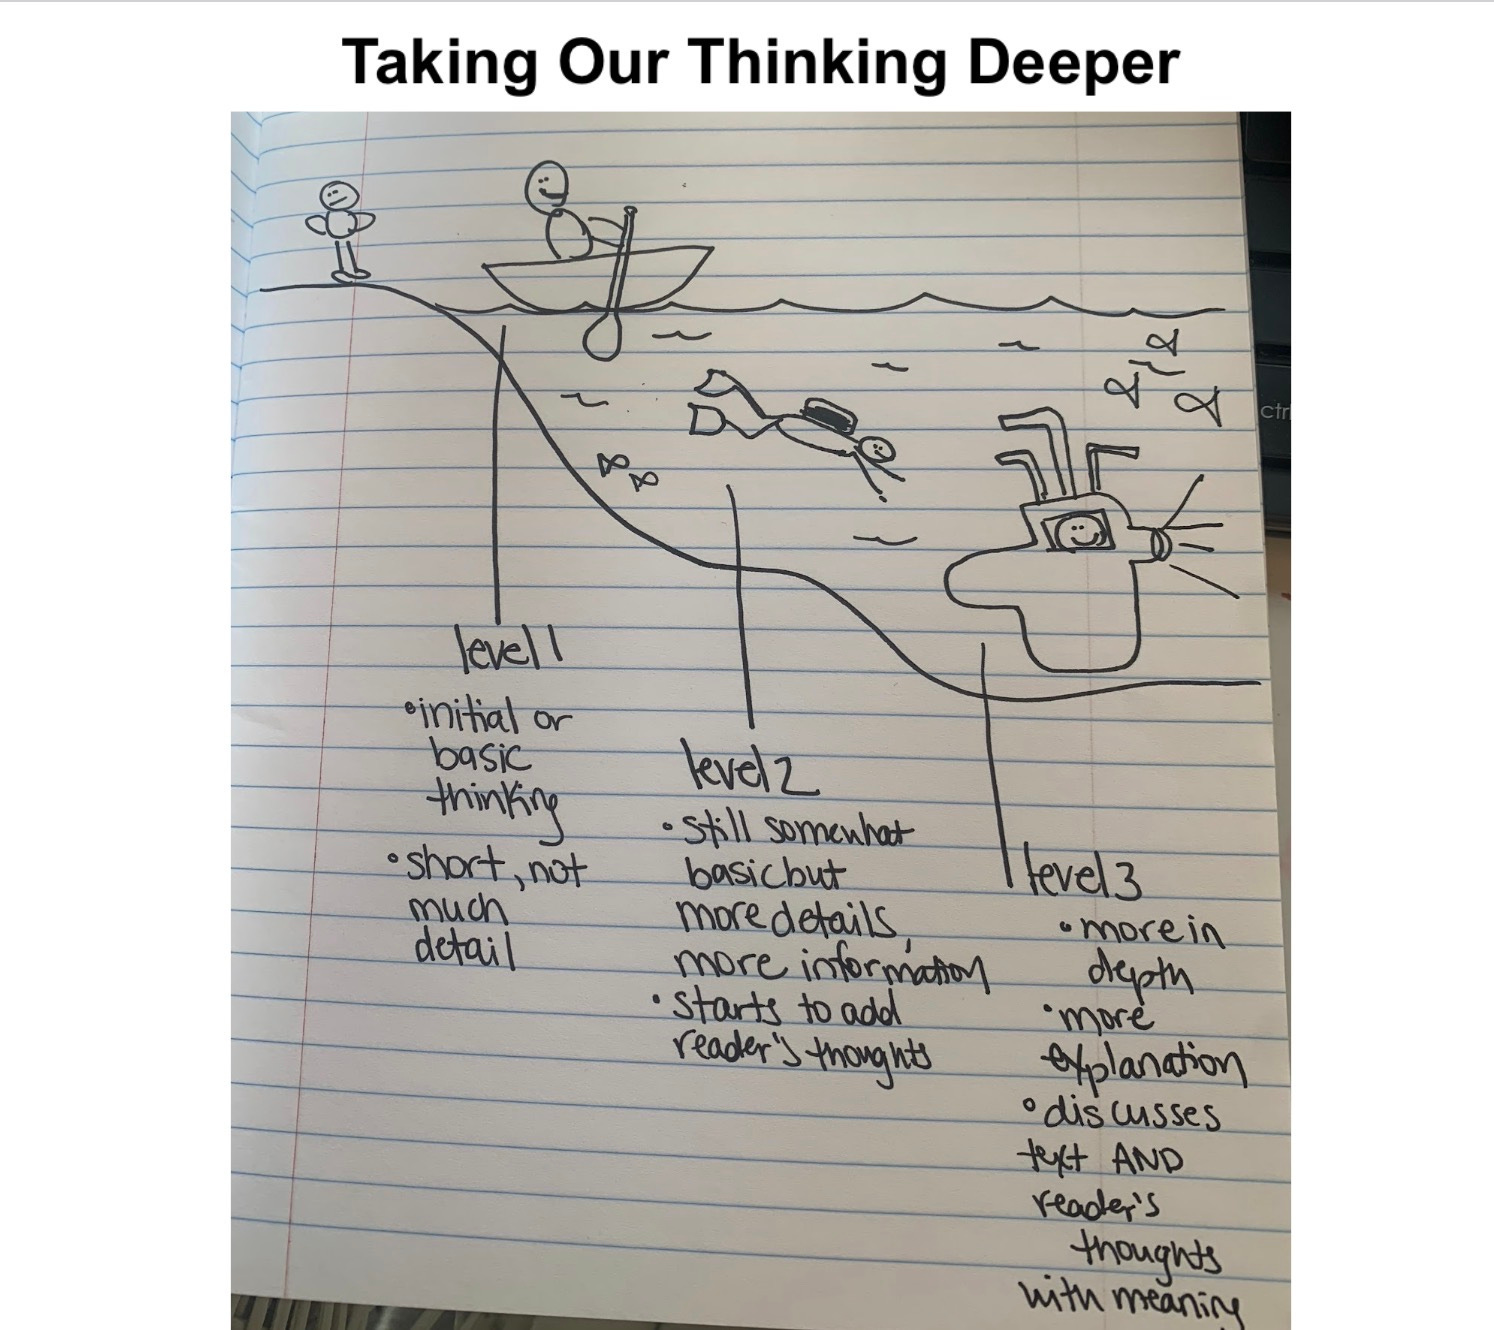 Taking Our Thinking Deeper
ctrl
level 1
•initial or
basic
thinking
•short, not
much
detail
level 2
•still somewhat
basic but
more details,
more information
•starts to add
reader's thoughts
level 3
•more in
depth
•more
explanation
•discusses
text AND
reader's
thoughts
with meaning